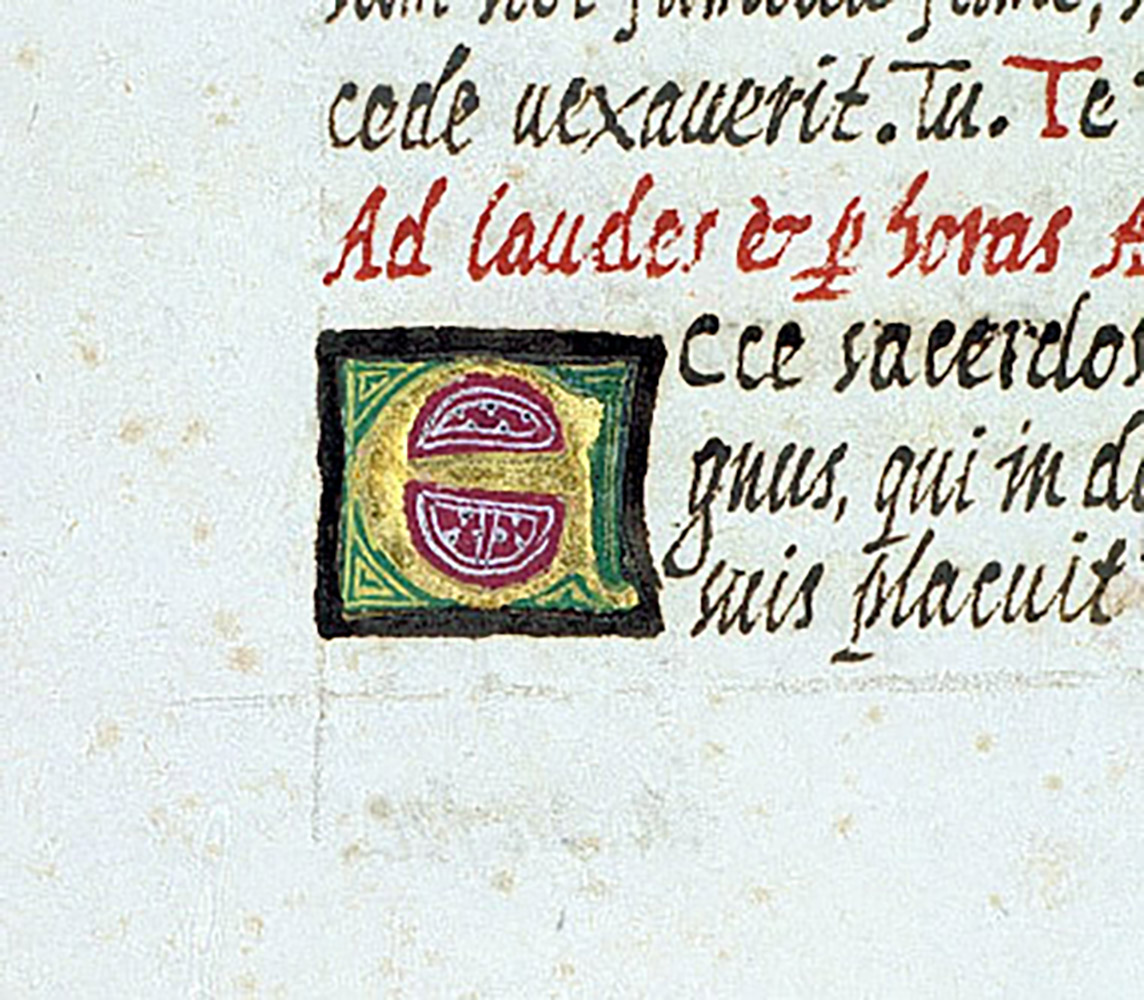 cede uexauerit. Tu. Te
Ad laudes & ꝑ horas A
Ecce sacerdos
gnus, qui in
suis placuit